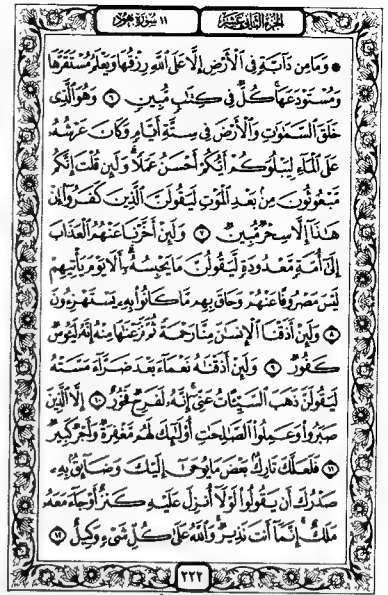 الجزء الثاني عشر
١١ سورة هود
۞ وَمَا مِن دَآبَّةٍ فِي ٱلْأَرْضِ إِلَّا عَلَى ٱللَّهِ رِزْقُهَا وَيَعْلَمُ مُسْتَقَرَّهَا
وَمُسْتَوْدَعَهَا ۚ كُلٌّ فِي كِتَٰبٍ مُّبِينٍ ٦ وَهُوَ ٱلَّذِي
خَلَقَ ٱلسَّمَٰوَٰتِ وَٱلْأَرْضَ فِي سِتَّةِ أَيَّامٍ وَكَانَ عَرْشُهُۥ
عَلَى ٱلْمَآءِ لِيَبْلُوَكُمْ أَيُّكُمْ أَحْسَنُ عَمَلًا ۗ وَلَئِن قُلْتَ إِنَّكُم
مَّبْعُوثُونَ مِنۢ بَعْدِ ٱلْمَوْتِ لَيَقُولَنَّ ٱلَّذِينَ كَفَرُوٓا۟ إِنْ
هَٰذَآ إِلَّا سِحْرٌ مُّبِينٌ ٧ وَلَئِنْ أَخَّرْنَا عَنْهُمُ ٱلْعَذَابَ
إِلَىٰٓ أُمَّةٍ مَّعْدُودَةٍ لَّيَقُولُنَّ مَا يَحْبِسُهُۥٓ ۗ أَلَا يَوْمَ يَأْتِيهِمْ
لَيْسَ مَصْرُوفًا عَنْهُمْ وَحَاقَ بِهِم مَّا كَانُوا۟ بِهِۦ يَسْتَهْزِءُونَ
٨ وَلَئِنْ أَذَقْنَا ٱلْإِنسَٰنَ مِنَّا رَحْمَةً ثُمَّ نَزَعْنَٰهَا مِنْهُ إِنَّهُۥ لَيَـُٔوسٌ
كَفُورٌ ٩ وَلَئِنْ أَذَقْنَٰهُ نَعْمَآءَ بَعْدَ ضَرَّآءَ مَسَّتْهُ
لَيَقُولَنَّ ذَهَبَ ٱلسَّيِّـَٔاتُ عَنِّيٓ ۚ إِنَّهُۥ لَفَرِحٌ فَخُورٌ ١٠ إِلَّا ٱلَّذِينَ
صَبَرُوا۟ وَعَمِلُوا۟ ٱلصَّٰلِحَٰتِ أُو۟لَٰٓئِكَ لَهُم مَّغْفِرَةٌ وَأَجْرٌ كَبِيرٌ
١١ فَلَعَلَّكَ تَارِكٌۢ بَعْضَ مَا يُوحَىٰٓ إِلَيْكَ وَضَآئِقٌۢ بِهِۦ
صَدْرُكَ أَن يَقُولُوا۟ لَوْلَآ أُنزِلَ عَلَيْهِ كَنزٌ أَوْ جَآءَ مَعَهُۥ
مَلَكٌ ۚ إِنَّمَآ أَنتَ نَذِيرٌ ۚ وَٱللَّهُ عَلَىٰ كُلِّ شَيْءٍ وَكِيلٌ ١٢
٢٢٢